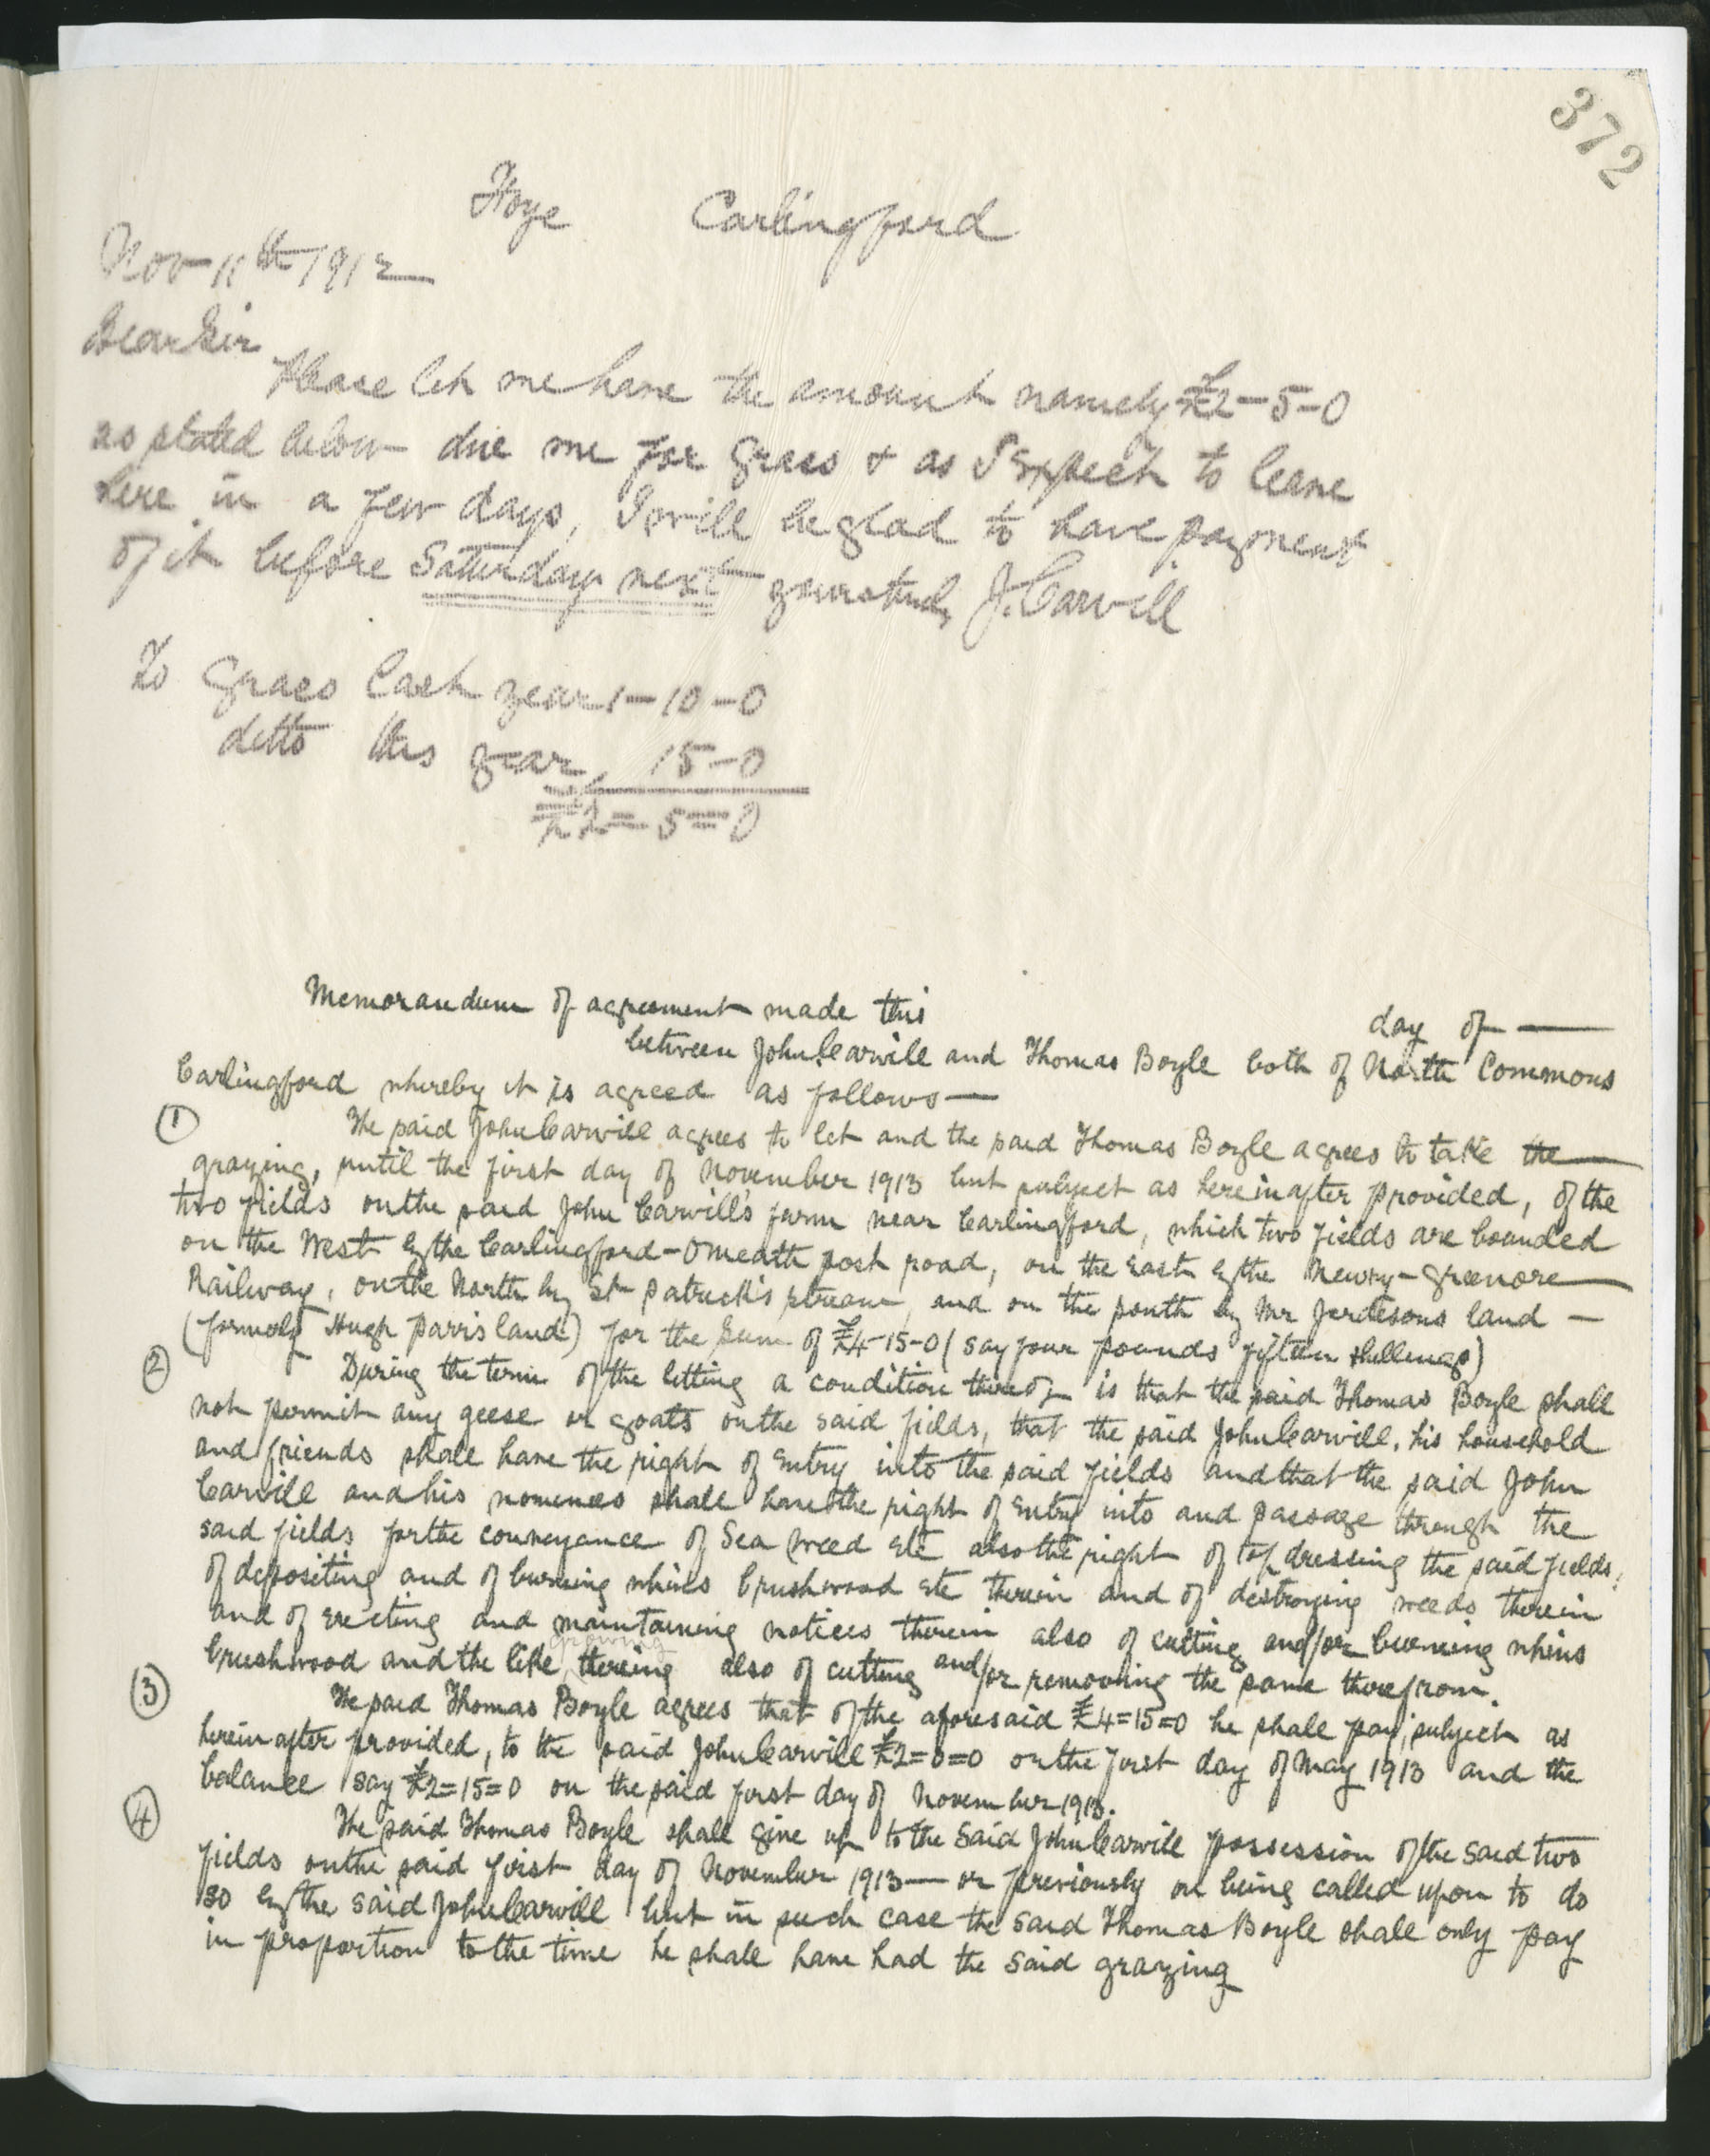 372
Hoye Carlingford
Nov 11th 1912
Dear Sir
Please let me have the amount namely £2-5-0
as stated below due me for grass & as I expect to leave
here in a few days, I will be glad to have payment
of it before Saturday next yours truly J. Carvill
To Grass Last year 1-10-0
ditto this year, 15-0
£2=5=0
Memorandum of agreement made this day of —
between John Carvill and Thomas Boyle both of North Commons
Carlingford whereby it is agreed as follows—
(1) The said John Carvill agrees to let and the said Thomas Boyle agrees to take the
grazing, until the first day of November 1913 but subject as hereinafter provided, of the
two fields on the said John Carvill's farm near Carlingford, which two fields are bounded
on the West by the Carlingford-Omeath post road, on the East by the Newry-Greenore
Railway, on the North by St Patrick's stream, and on the south by Mr land —
(formerly Hugh Parrs land) for the sum of £4-15-0 (say four pounds fifteen shillings)
(2) During the term of the letting a condition thereof is that the said Thomas Boyle shall
not permit any geese or goats on the said fields, that the said John Carvill, his household
and friends shall have the right of Entry into the said fields and that the said John
Carvill and his nominees shall have the right of Entry into and passage through the
said fields for the conveyance of Sea Weed etc also the right of top dressing the said fields,
of depositing and of burning whins brushwood etc therein and of destroying weeds therein
and of erecting and maintaining notices therein also of cutting and/or burning whins
brushwood and the like growing therein also of cutting and/or removing the same therefrom.
(3) The said Thomas Boyle agrees that of the aforesaid £4=15=0 he shall pay, subject as
hereinafter provided, to the said John Carvill £2=0=0 on the first day of May 1913 and the
balance say £2=15=0 on the said first day of November 1913.
(4) The said Thomas Boyle shall give up to the said John Carvill possession of the said two
fields on the said first day of November 1913— or previously on being called upon to do
so by the said John Carvill but in such case the said Thomas Boyle shall only pay
in proportion to the time he shall have had the said grazing